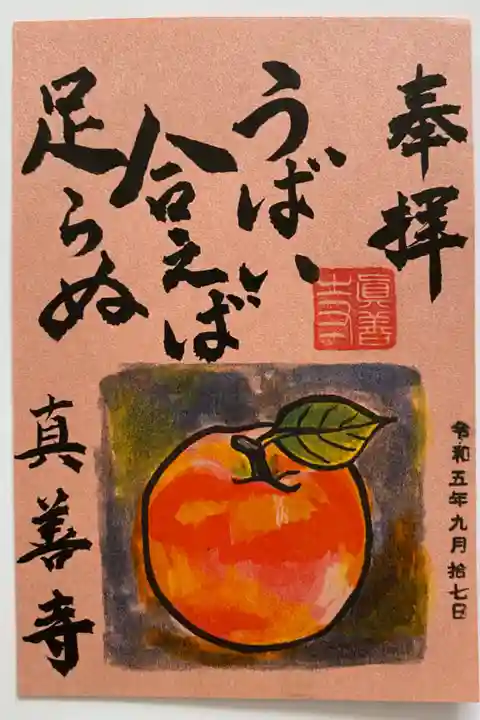 奉拝
うばい
合えば
足らぬ
眞善寺
真善寺
令和五年九月拾七日